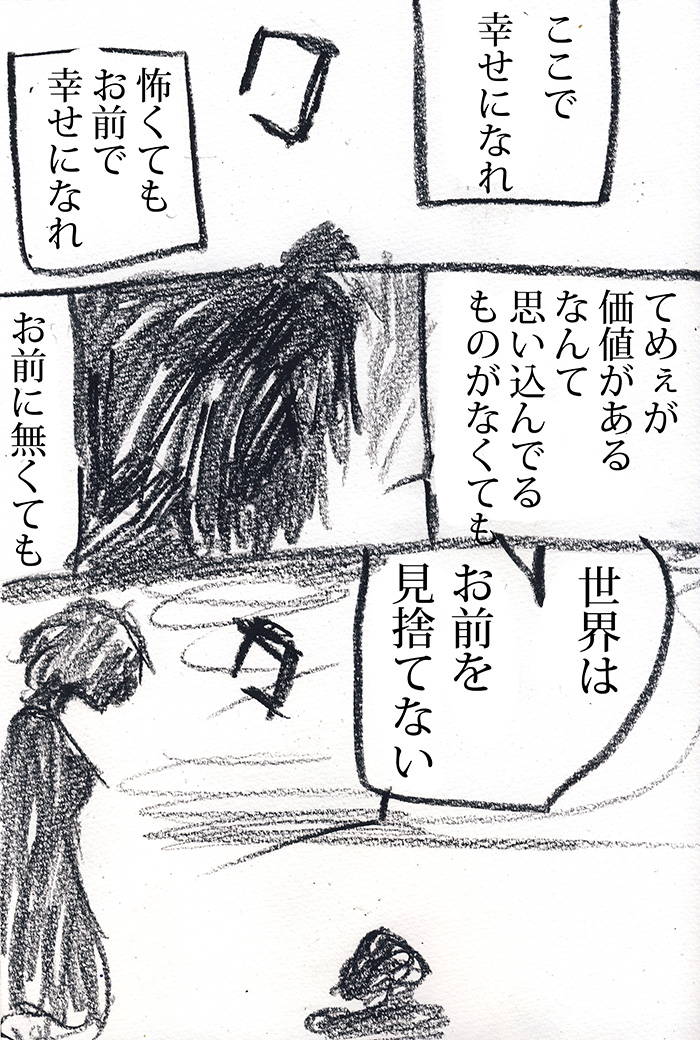 ここで
幸せになれ
怖くても
お前で
幸せになれ
てめぇが
価値がある
なんて
思い込んでる
ものがなくても
お前に無くても
世界は
お前を
見捨てない